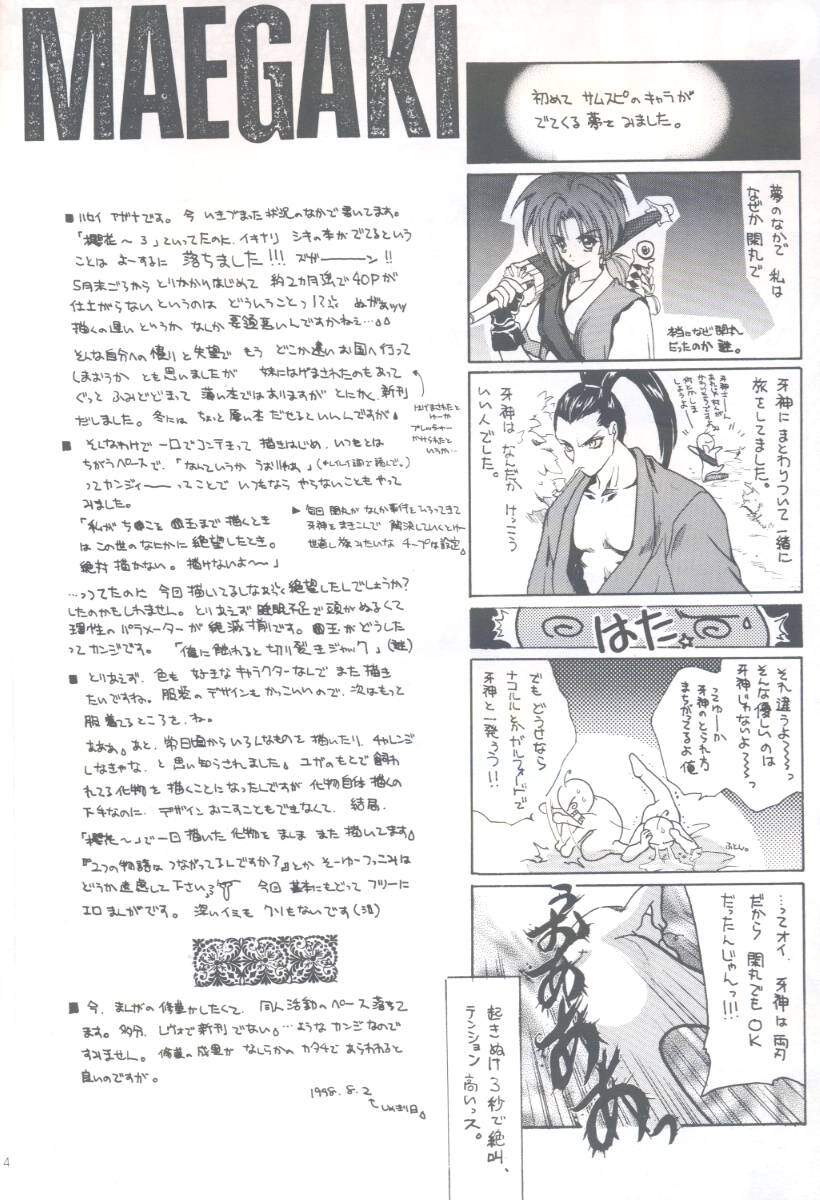 MAEGAKI
■ ハロイ アガナです。今 いきづまった状況のなかで書いてます。
「櫻花〜3」といってたのに、イキナリ シキの本がでてるという
ことは よーするに 落ちました!!! ズガーーーン!!
5月末ごろから とりかかりはじめて 約2カ月強で40Pが
仕上がらないというのは どういうことっ!?
描くの遅い どりょうか なんか 要領悪いんですかねえ…
そんな自分への憤りと失望で もう どこか遠いお国へ行って
しまおうか とも思いましたが 妹にはげまされたのもあって
ぐっと ふみとどまって 薄い本ではありますが とにかく、新刊
だしました。冬には ちょっと厚い本 だせるといいんですが
はげまされたと
ゆーか
プレッシャー
かけられたと
いうか…
■ そんなわけで一日でコンテきって 描きはじめ、いつもとは
ちがうペースで、「なんていうか うおりゃあ」
ってカンジィーーーってことで いつもなら やらないこともやって
みました。
▶ 毎回 閑丸が なんか事件をひろってきて
牙神をまきこんで 解決していくとゆー
世直し旅みたいな チープな設定。
「私が ち●こと ●玉まで 描くとき
は この世のなにかに 絶望したとき。
絶対 描かない。描けないよ〜〜」
…ってたのに 今回描いてるし なぁぁと絶望したしでしょうか?
したのかもしれません。とりあえず 睡眠不足で頭がぬるくて
理性の パラメーターが 絶滅寸前です。●玉がどうした
ってカンジです。「俺に触れると 切り裂きジャック」(謎)
■ とりあえず、色も 好きなキャラクターなんで また 描き
たいですね。服装の デザインも かっこいいので、次はもって
服着てるところを、ね。
あああ。あと、常日頃から いろんなものを 描いたり、チャレンジ
しなきゃな、と 思い知らされました。ユガのもとで 飼わ
れてる化物を 描くことになったんですが 化物自体 描くの
下手なのに、デザイン おこすことも できなくて、結局
「櫻花〜」で一回描いた 化物を まんま また 描いてます。
『2つの物語は つながってるんですか?』とか そーゆーつっこみは
どうか 遠慮して下さい 今回 基本にもどって フツーに
エロまんがです。深いイミも クソもないです(泣)
■ 今、まんがの 修業がしたくて、同人活動のペース 落ちて
ます。多分、レヴォで新刊でない。…ような カンジなので
すみません。修業の成果が なんらかの カタチで あらわれると
良いのですが。
1998. 8. 2
しめきり日。
初めて サムスピのキャラが
でてくる 夢を みました。
夢のなかで 私は
なぜか 閑丸で
本当になぜ閑丸
だったのか 謎。
牙神にまとわりついて一緒に
旅をしてました。
牙神は なんだか けっこう
いい人でした。
はた☆
それ違うよ〜〜〜っ
そんな優しいのは
牙神じゃないよ〜〜〜っ
ってゆーか
牙神のとられ方
まちがってるよ 俺
でも どうせなら
ナコルルとかガルフォードで
牙神と一発ろう!!
ふとん。
…ってオイ、牙神は 両刃
だから 閑丸でもOK
だったんじゃんっ!!!
うおおおあああぁっ
起きぬけ3秒で絶叫、
テンション 高いっス。
4